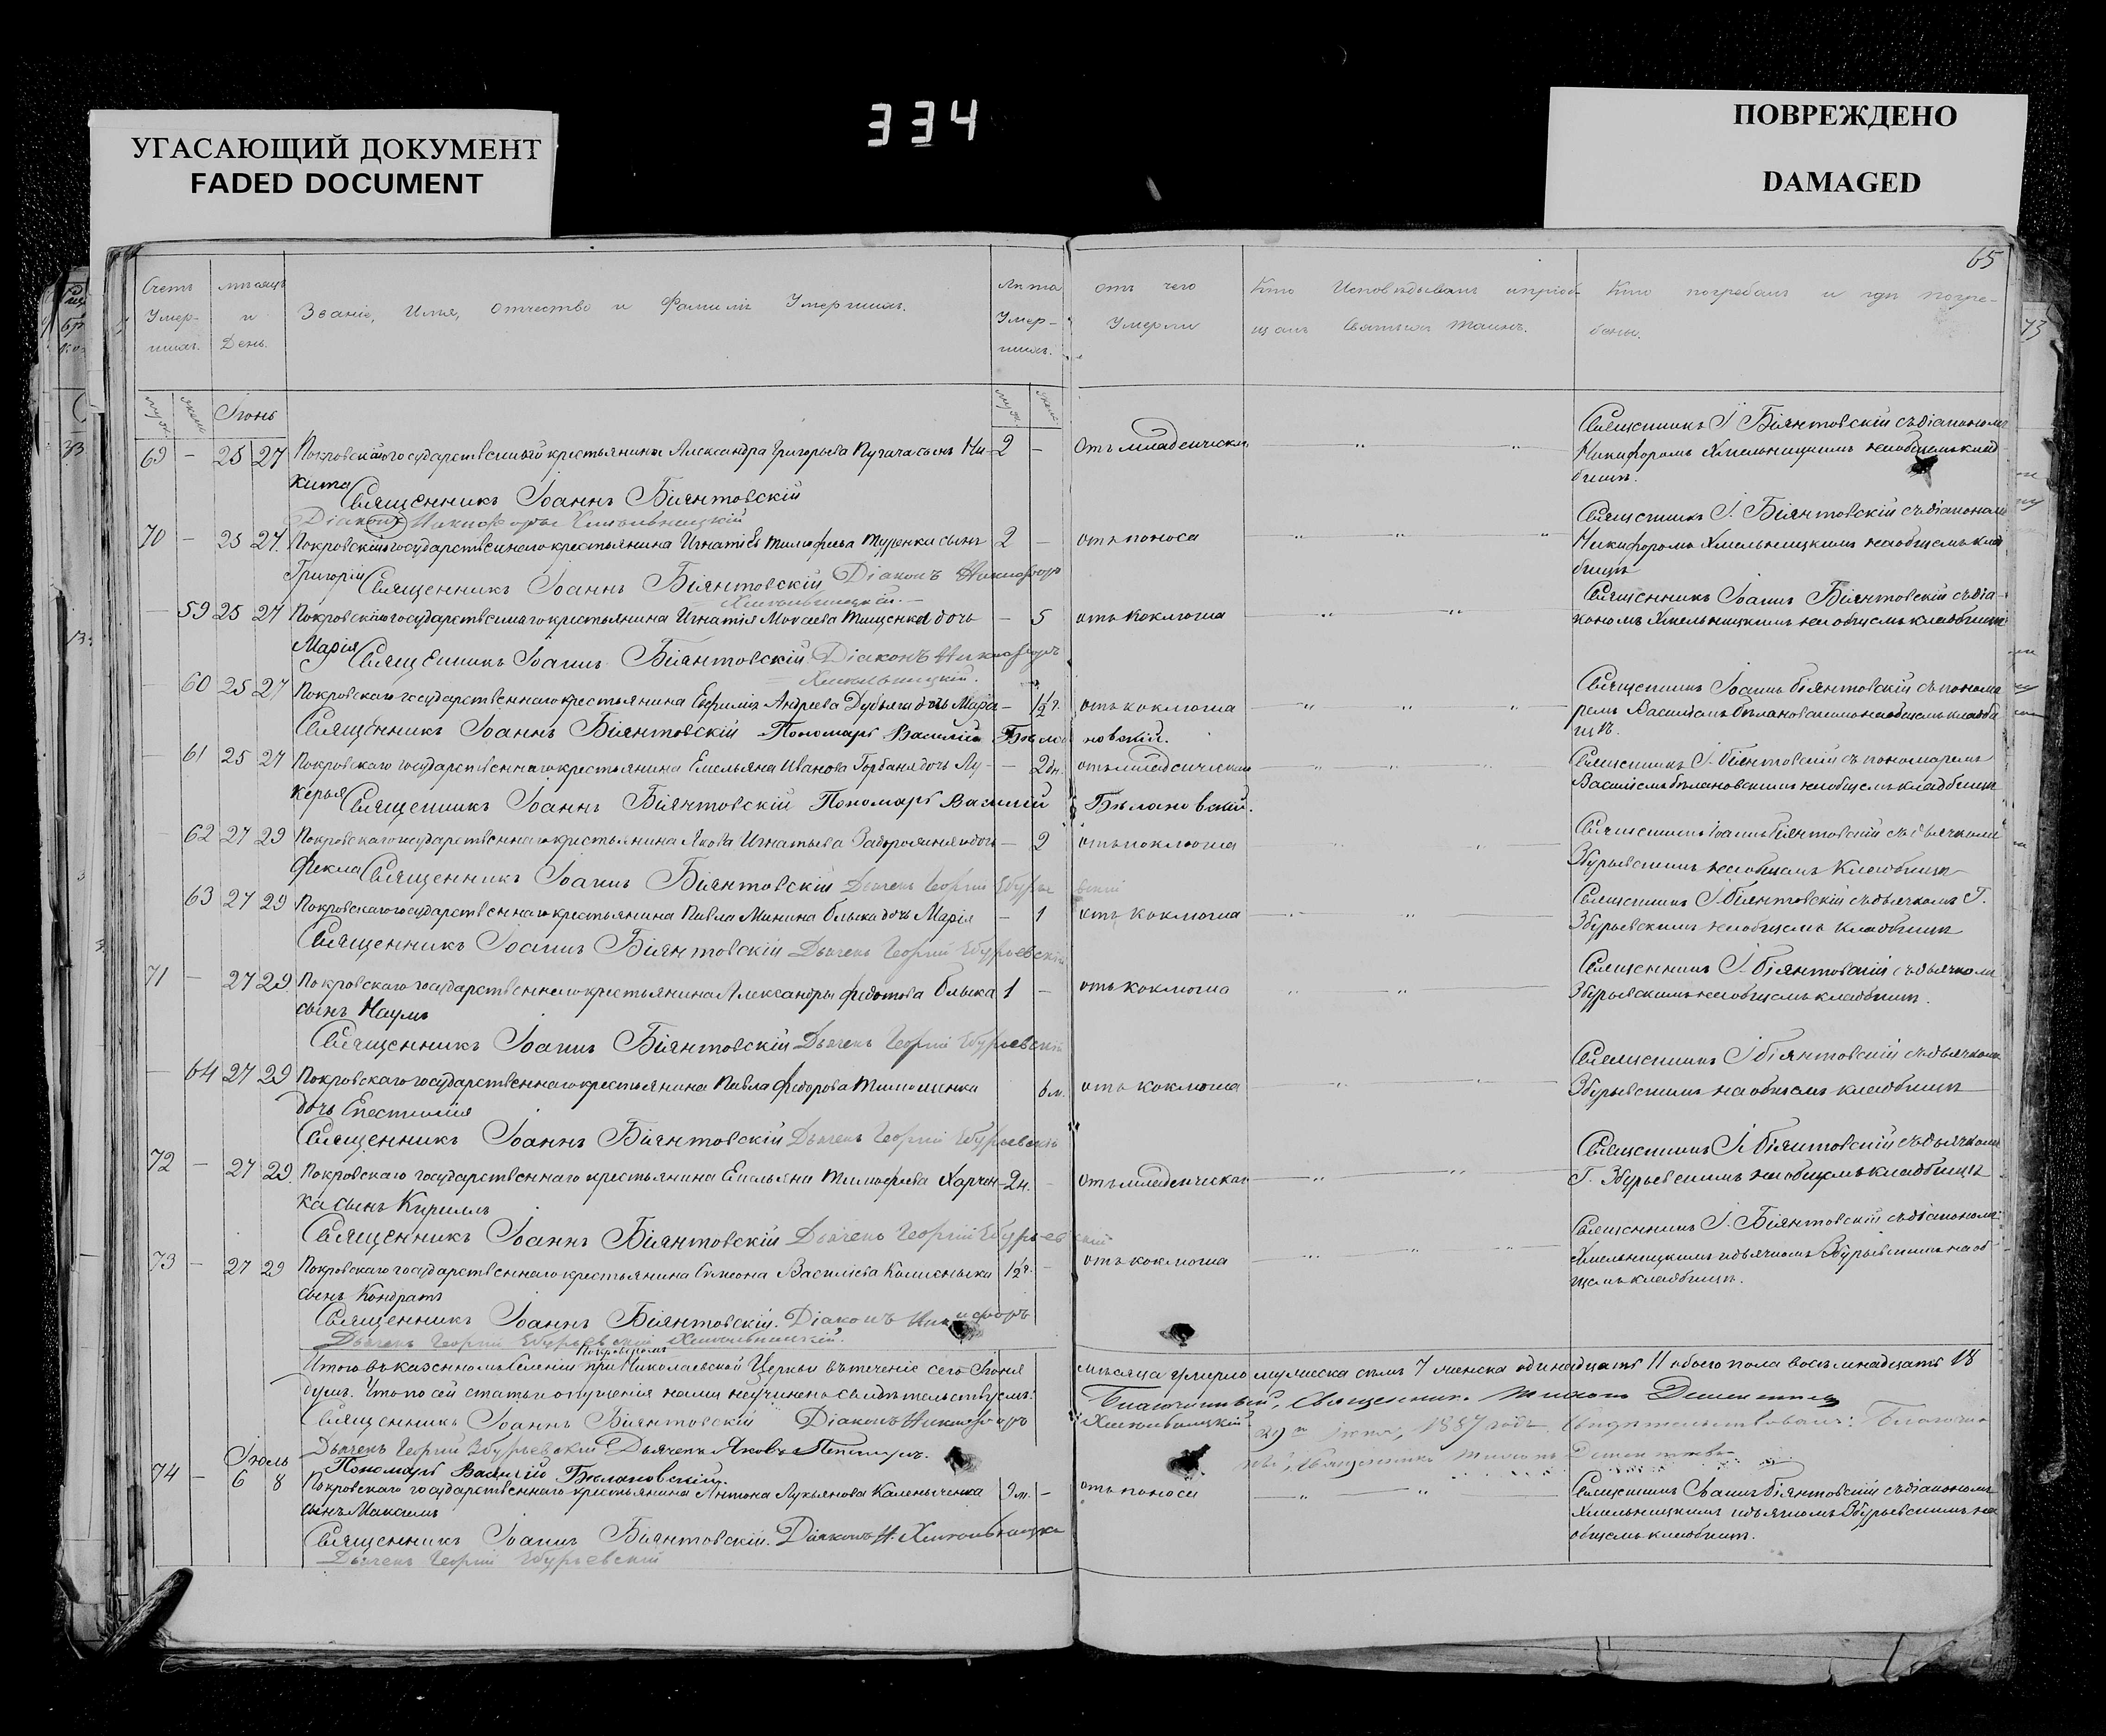 334
УГАСАЮЩИЙ ДОКУМЕНТ
FADED DOCUMENT
ПОВРЕЖДЕНО
DAMAGED
65
73
Счетъ Умер- шихъ.
мѣсяцъ и День.
Званіе, Имя, Отчество и Фамилія Умершихъ.
Лѣта Умер- шихъ.
отъ чего Умерли
Кто Исповѣдывалъ и пріоб- щалъ Святыхъ Таинъ.
Кто погребалъ и гдѣ погре- бены.
Іюнь
69 - 25 27 Покровскаго государственнаго крестьянина Александра Григорьева Пугача сынъ Ни- 2 - Отъ младенческой Священникъ І Біянтовскій съ діакономъ
кита Никифоромъ Хмельницкимъ на общемъ клад-
Священникъ Іоаннъ Біянтовскій бищѣ.
Діаконъ Никифоръ Хмельницкій
70 - 25 27. Покровскаго государственнаго крестьянина Игнатія Тимофѣева сынъ 2 - отъ поноса Священникъ І. Біянтовскій съ діакономъ
Григорій Священникъ Іоаннъ Біянтовскій Діаконъ Никифоръ Никифоромъ Хмельницкимъ на общемъ клад
Хмельницкій. бищѣ
- 59 25 27 Покровскаго государственнаго крестьянина Игнатія Мосеева Тищенка дочь - 5 отъ коклюша Священникъ Іоаннъ Біянтовскій съ діа-
Марія Священникъ Іоаннъ Біянтовскій Діаконъ Никифоръ кономъ Хмельницкимъ на общемъ кладбищѣ
Хмельницкій.
- 60 25 27 Покровскаго государственнаго крестьянина Евфимія Андреева дочь Марія - 1½ г. отъ коклюша Священникъ Іоаннъ Біянтовскій съ понома
Священникъ Іоаннъ Біянтовскій Пономарь Василій Бѣлановскій. ремъ Василіемъ Бѣлановскимъ на общемъ кладби
щѣ.
- 61 25 27 Покровскаго государственнаго крестьянина Емельяна Иванова Горбаня дочь Лу- - 2 дн. отъ младенческой Священникъ І. Біянтовскій съ пономаремъ
керья Священникъ Іоаннъ Біянтовскій Пономарь Василій Бѣлановскій. Василіемъ Бѣлановскимъ на общемъ кладбищѣ
62 27 29 Покровскаго государственнаго крестьянина Якова Игнатьева дочь - 2 отъ коклюша Священникъ Іоаннъ Біянтовскій съ дьячкомъ
Фекла Священникъ Іоаннъ Біянтовскій Дьячекъ Георгій Збурьевскій Збурьевскимъ на общемъ кладбищѣ
63 27 29 Покровскаго государственнаго крестьянина Павла Минина дочь Марія - 1 отъ коклюша Священникъ І. Біянтовскій съ дьячкомъ Г.
Священникъ Іоаннъ Біянтовскій Дьячекъ Георгій Збурьевскій Збурьевскимъ на общемъ кладбищѣ
71 - 27 29. Покровскаго государственнаго крестьянина Александра Федотова 1 - отъ коклюша Священникъ І. Біянтовскій съ дьячкомъ
сынъ Наумъ Збурьевскимъ на общемъ кладбищѣ.
Священникъ Іоаннъ Біянтовскій Дьячекъ Георгій Збурьевскій
- 64 27 29 Покровскаго государственнаго крестьянина Павла Федорова Тимошенка 6 м. отъ коклюша Священникъ І Біянтовскій съ дьячкомъ
дочь Епестимія Збурьевскимъ на общемъ кладбищѣ
Священникъ Іоаннъ Біянтовскій Дьячекъ Георгій Збурьевскій
72 - 27 29. Покровскаго государственнаго крестьянина Емельяна Тимофѣева Харчен- 2 н. - Отъ младенческой Священникъ І. Біянтовскій съ дьячкомъ
ка сынъ Кириллъ Г. Збурьевскимъ на общемъ кладбищѣ
Священникъ Іоаннъ Біянтовскій Дьячекъ Георгій Збурьевскій
73 - 27 29 Покровскаго государственнаго крестьянина Симеона Василіева 1½ г. - отъ коклюша Священникъ І. Біянтовскій съ діакономъ
сынъ Кондратъ Хмельницкимъ и дьячкомъ Збурьевскимъ на об
Священникъ Іоаннъ Біянтовскій. Діаконъ Никифоръ щемъ кладбищѣ.
Дьячекъ Георгій Збурьевскій Хмельницкій.
Итого въ казенномъ селеніи Покровскомъ при Николаевской Церкви въ теченіе сего Іюня мѣсяца умерло мужеска семь 7 женска одинадцать 11 обоего пола восемьнадцать 18
душъ. Что по сей статьи опущенія нами неучинено свидѣтельствуемъ.
Священникъ Іоаннъ Біянтовскій Діаконъ Никифоръ Хмельницкій
Благочинный, Священникъ
29 1857 года Свидѣтельствовалъ: Благочин
Священникъ
Дьячекъ Георгій Збурьевскій Дьячекъ Яковъ
Пономарь Василій Бѣлановскій.
Іюль
74 - 6 8 Покровскаго государственнаго крестьянина Антона Лукьянова Каленыченка 9 м. - отъ поноса Священникъ Іоаннъ Біянтовскій съ діакономъ
сынъ Максимъ Хмельницкимъ и дьячкомъ Збурьевскимъ на
Священникъ Іоаннъ Біянтовскій. Діаконъ Н. Хмельницкій общемъ кладбищѣ.
Дьячекъ Георгій Збурьевскій